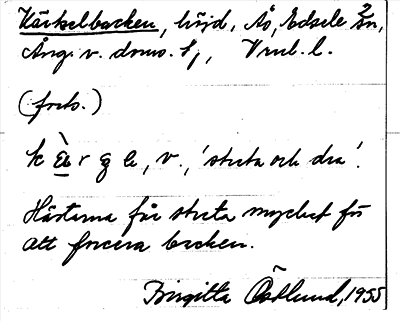 Kärkselbacken, höjd, Ås, Edsele sn,
Ång. v. doms. 
(forts.)
v., 'streta och dra'.
Hästarna får streta mycket för
att forcera backen.
Birgitta Östlund, 1955